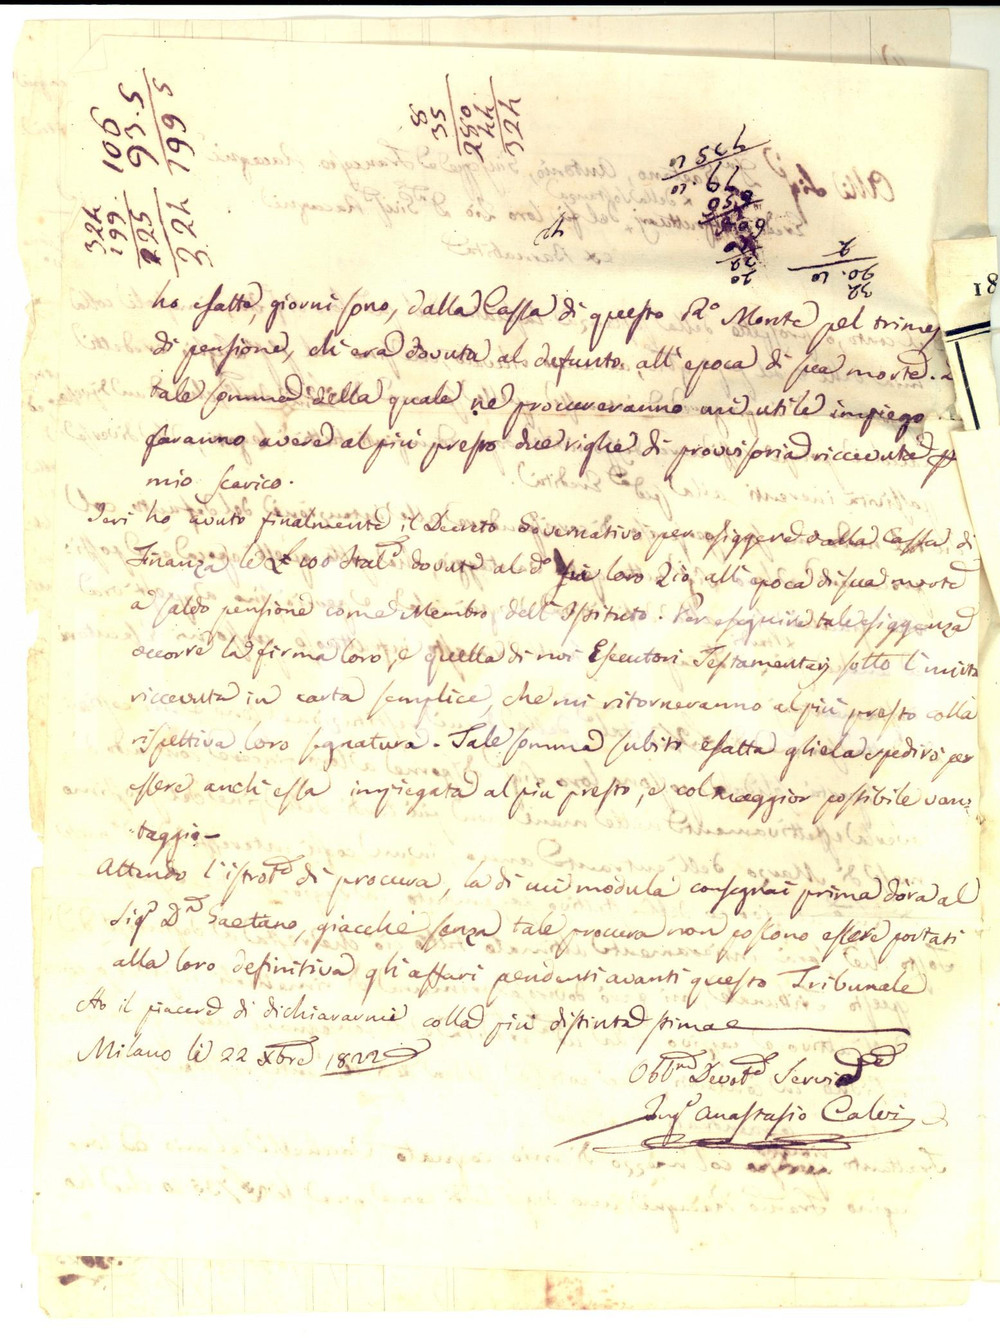 106
93.5
799 5
324
199
225
324
8
35
280
44
324
735 10
79.10
650
20
20.10
32
Alli Sig.ri
18
ho esatte, giorni sono, dalla Cassa di questo R.o Monte pel trimes
di pensione, ch'era dovuta al defunto all'epoca di sua morte.
tale somma della quale ne procureranno un utile impiego
faranno avere al più presto due righe di provvisoria riccevuta p
mio scarico.
Ieri ho avuto finalmente il Decreto Governativo per esiggere dalla Cassa di
Finanza le £ 100 Ital.e dovute al d.o fu loro Zio all'epoca di sua morte
a saldo pensione come Membro dell'Istituto. Per eseguire tale esiggenza
occorre la firma loro, e quella di noi Esecutori Testamentarj sotto l'unita
riccevuta in carta semplice, che mi ritorneranno al più presto colla
rispettiva loro segnatura. Tale somma subito esatta gliela spedirò per
essere anch'essa impiegata al più presto, e col maggior possibile van=
taggio -
Attendo l'istrom.to di procura, la di cui modula consegnai prima d'ora al
Sig.r D.n Gaetano, giacchè senza tale procura non possono essere portati
alla loro definitiva gli affari pendenti avanti questo Tribunale
Ho il piacere di dichiararmi colla più distinta stima
Milano li 22 Xbre 1822
Obb.mo Devot.o Servid.e
Ing.r Anastasio Calvi